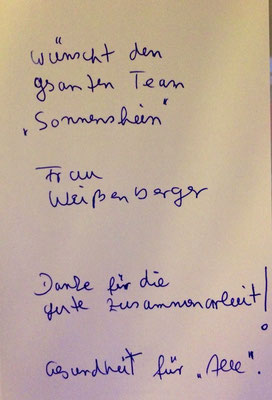 wünscht den
gsanten Team
"Sonnenshein"
Frau
Weißenberger
Danke für die
gute Zusammenarbeit!
Gesundheit für "Alle".